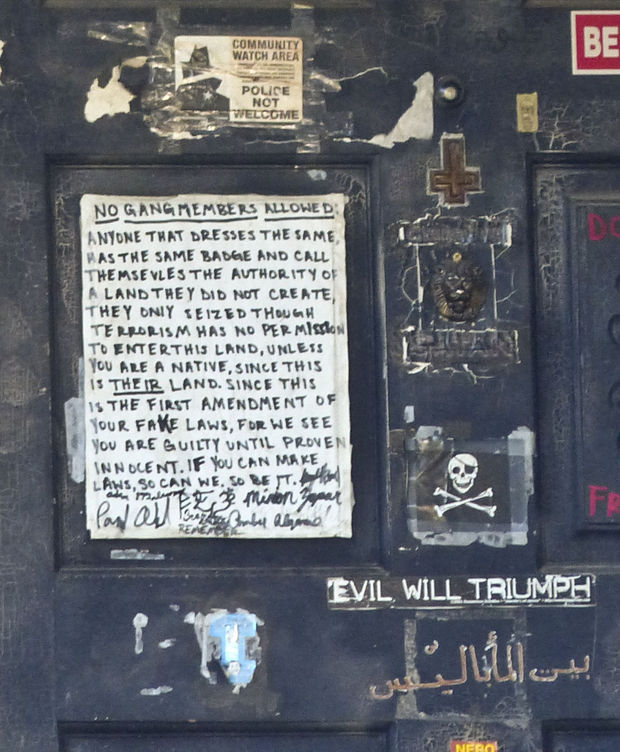 COMMUNITY
WATCH AREA
POLICE
NOT
WELCOME
BE
NO GANG MEMBERS ALLOWED:
ANYONE THAT DRESSES THE SAME,
HAS THE SAME BADGE AND CALL
THEMSEVLES THE AUTHORITY OF
A LAND THEY DID NOT CREATE,
THEY ONLY SEIZED THOUGH
TERRORISM HAS NO PERMISSION
TO ENTER THIS LAND, UNLESS
YOU ARE A NATIVE, SINCE THIS
IS THEIR LAND. SINCE THIS
IS THE FIRST AMENDMENT OF
YOUR FAKE LAWS, FOR WE SEE
YOU ARE GUILTY UNTIL PROVEN
INNOCENT. IF YOU CAN MAKE
LAWS, SO CAN WE. SO BE IT.
REMEMBER
DO
FR
EVIL WILL TRIUMPH
بيت المأباليس
NEBO